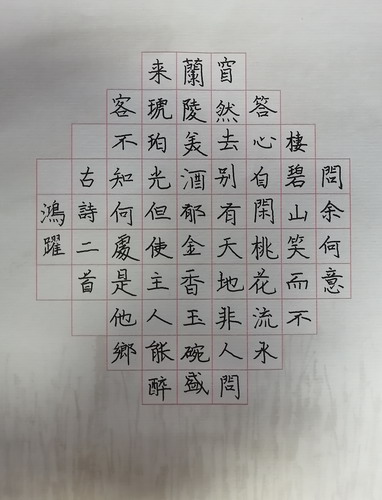 問余何意
棲碧山笑而不
答心自閑桃花流水
窅然去别有天地非人間
蘭陵美酒郁金香玉碗盛
来琥珀光但使主人能醉
客不知何處是他鄉
古詩二首
鴻躍